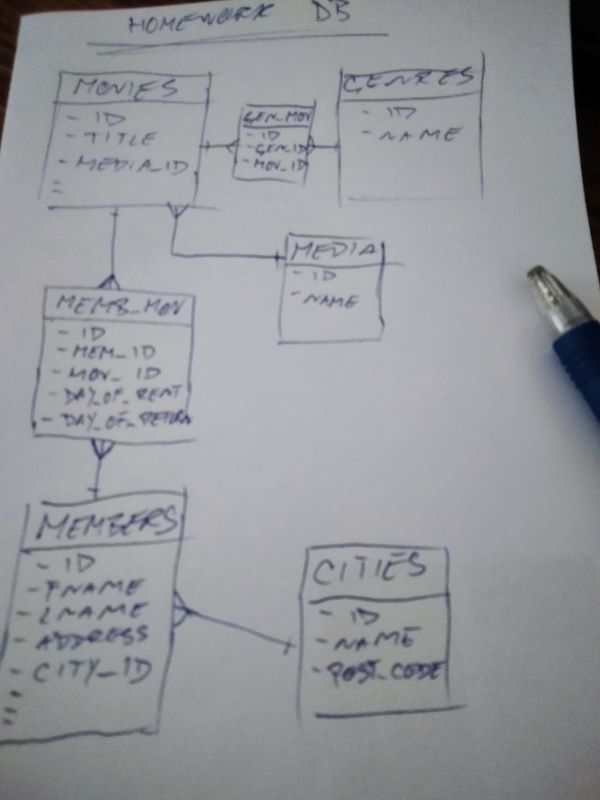 HOMEWORK DB
MOVIES
- ID
- TITLE
- MEDIA_ID
GEN_MOV
- ID
- GEN_ID
- MOV_ID
GENRES
- ID
- NAME
MEDIA
- ID
- NAME
MEMB_MOV
- ID
- MEM_ID
- MOV_ID
- DAY_OF_RENT
- DAY_OF_RETURN
MEMBERS
- ID
- FNAME
- LNAME
- ADDRESS
- CITY_ID
CITIES
- ID
- NAME
- POST_CODE